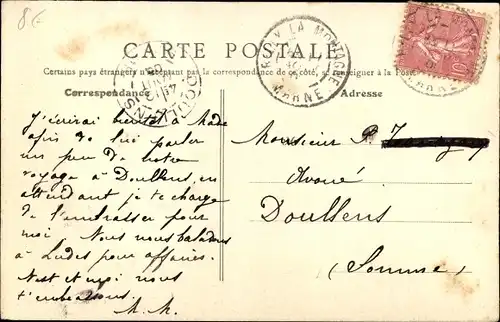 8€
CARTE POSTALE
Certains pays étrangers n'acceptant pas la correspondance de ce côté, se renseigner à la Poste
Correspondance
Adresse
RILLY LA MONTAGNE
MARNE
J'écrirai bientôt à Made
afin de lui parler
un peu de notre
voyage à Doullens, en
attendant je te charge
de l'embrasser pour
moi Nous nous baladons
à Ludes pour affaires.
et moi nous
t'embrassons.
M. M.
Monsieur P.
Avoué
Doullens
(Somme)